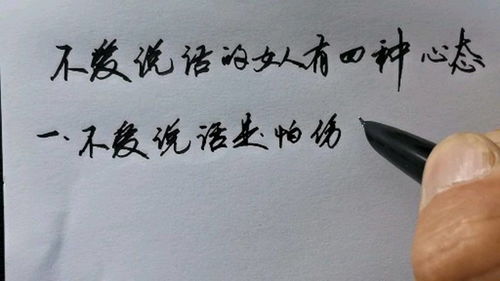 不爱说话的女人有四种心态
一.不爱说话是怕伤